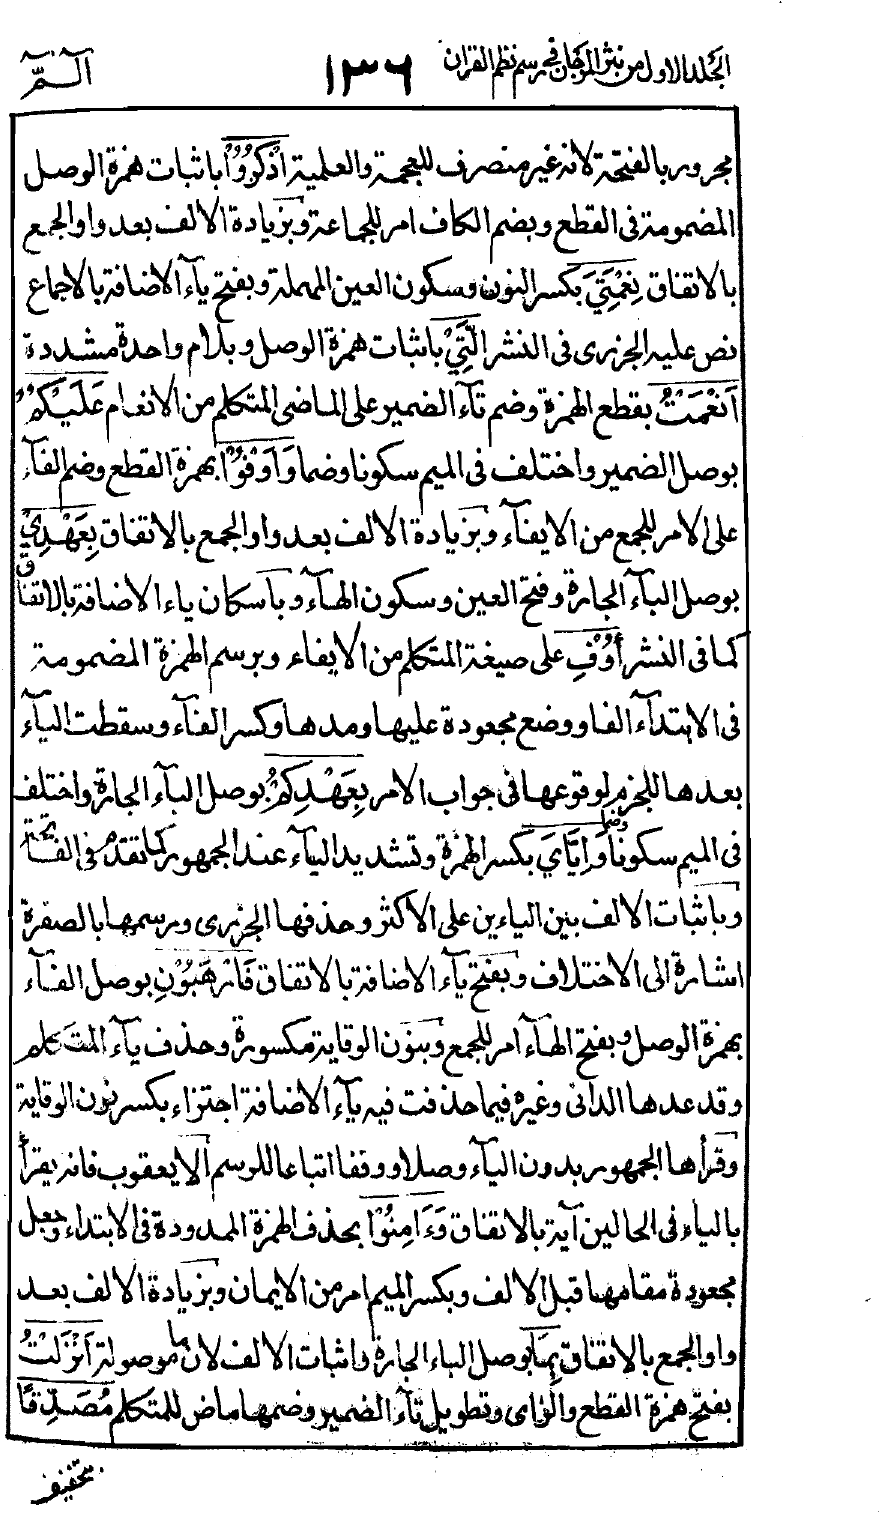 الجلد الاول من نثر المرجان فى رسم نظم القران ١٣٦ الـــمّ
مجرور بالفتحة لانه غير منصرف للعجمة والعلمية اذْكُرُوْا باثبات همزة الوصل
المضمومة فى القطع وبضم الكاف امر للجماعة وبزيادة الالف بعد واو الجمع
بالاتفاق نِعْمَتِيَ بكسر النون وسكون العين المهملة وبفتح يآء الاضافة بالاجماع
نص عليه الجزرى فى النشر الَّتِيْ باثبات همزة الوصل وبلام واحدة مشددة
اَنْعَمْتُ بقطع الهمزة وضم تآء الضمير على الماضى المتكلم من الانعام عَلَيْكُمْ
بوصل الضمير واختلف فى الميم سكونا وضما وَاَوْفُوْا بهمزة القطع وضم الفآء
على الامر للجمع من الايفآء وبزيادة الالف بعد واو الجمع بالاتفاق بِعَهْدِيْ
بوصل البآء الجارة وفتح العين وسكون الهآء وباسكان ياء الاضافة بالاتفاق
كما فى النشر أُوْفِ على صيغة المتكلم من الايفاء وبرسم الهمزة المضمومة
فى الابتدآء الفا ووضع مجعودة عليها ومدها وكسر الفآء وسقطت اليآء
بعدها للجزم لوقوعها فى جواب الامر بِعَهْدِكُمْ بوصل البآء الجارة واختلف
فى الميم سكونا وضما وَاِيَّايَ بكسر الهمزة وتشديد اليآء عند الجمهور كما تقدم فى الفاتحة
وباثبات الالف بين الياءين على الاكثر وحذفها الجزرى ورسمها بالصفرة
اشارة الى الاختلاف وبفتح يآء الاضافة بالاتفاق فَارْهَبُوْنِ بوصل الفآء
بهمزة الوصل وبفتح الهآء امر للجمع وبنون الوقاية مكسورة وحذف يآء المتكلم
وقد عدها الدانى وغيره فيما حذفت فيه يآء الاضافة اجتزاء بكسر نون الوقاية
وقرأها الجمهور بدون اليآء وصلا ووقفا اتباعا للرسم الا يعقوب فانه يقرأ
بالياء فى الحالين آية بالاتفاق وَءَامِنُوْا بحذف الهمزة الممدودة فى الابتداء وجعل
مجعودة مقامها قبل الالف وبكسر الميم امر من الايمان وبزيادة الالف بعد
واو الجمع بالاتفاق بِمَا بوصل الباء الجارة واثبات الالف لان ما موصولة اَنْزَلْتُ
بفتح همزة القطع والزاى وتطويل تآء الضمير وضمها ماض للمتكلم مُصَدِّقًا
بتخفيف